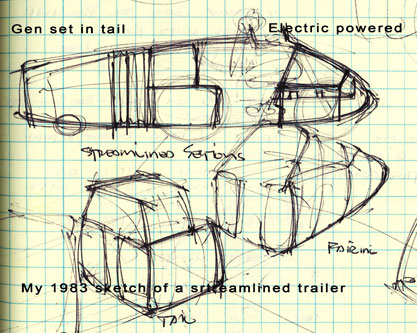 Gen set in tail
Electric powered
streamlined
Fairing
My 1983 sketch of a srtreamlined trailer
Tail